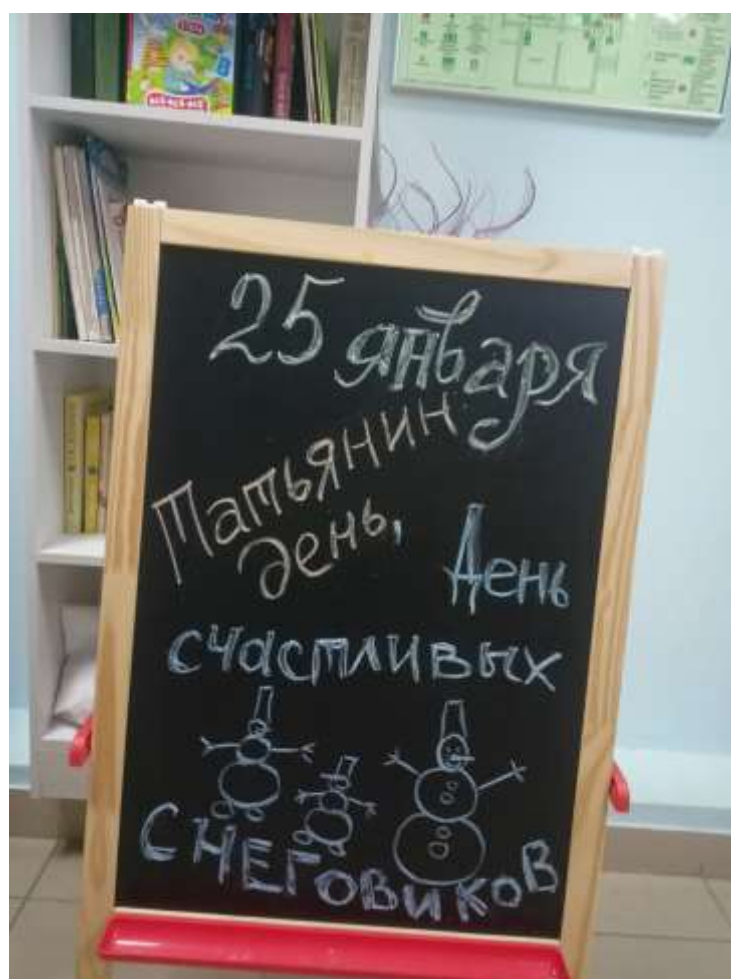 25 января
Татьянин
день,
День
счастливых
снеговиков